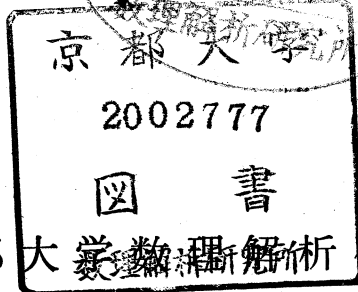 数理解析研究所
京都大学
2002777
図書
大学数理解析
数理解析研究所